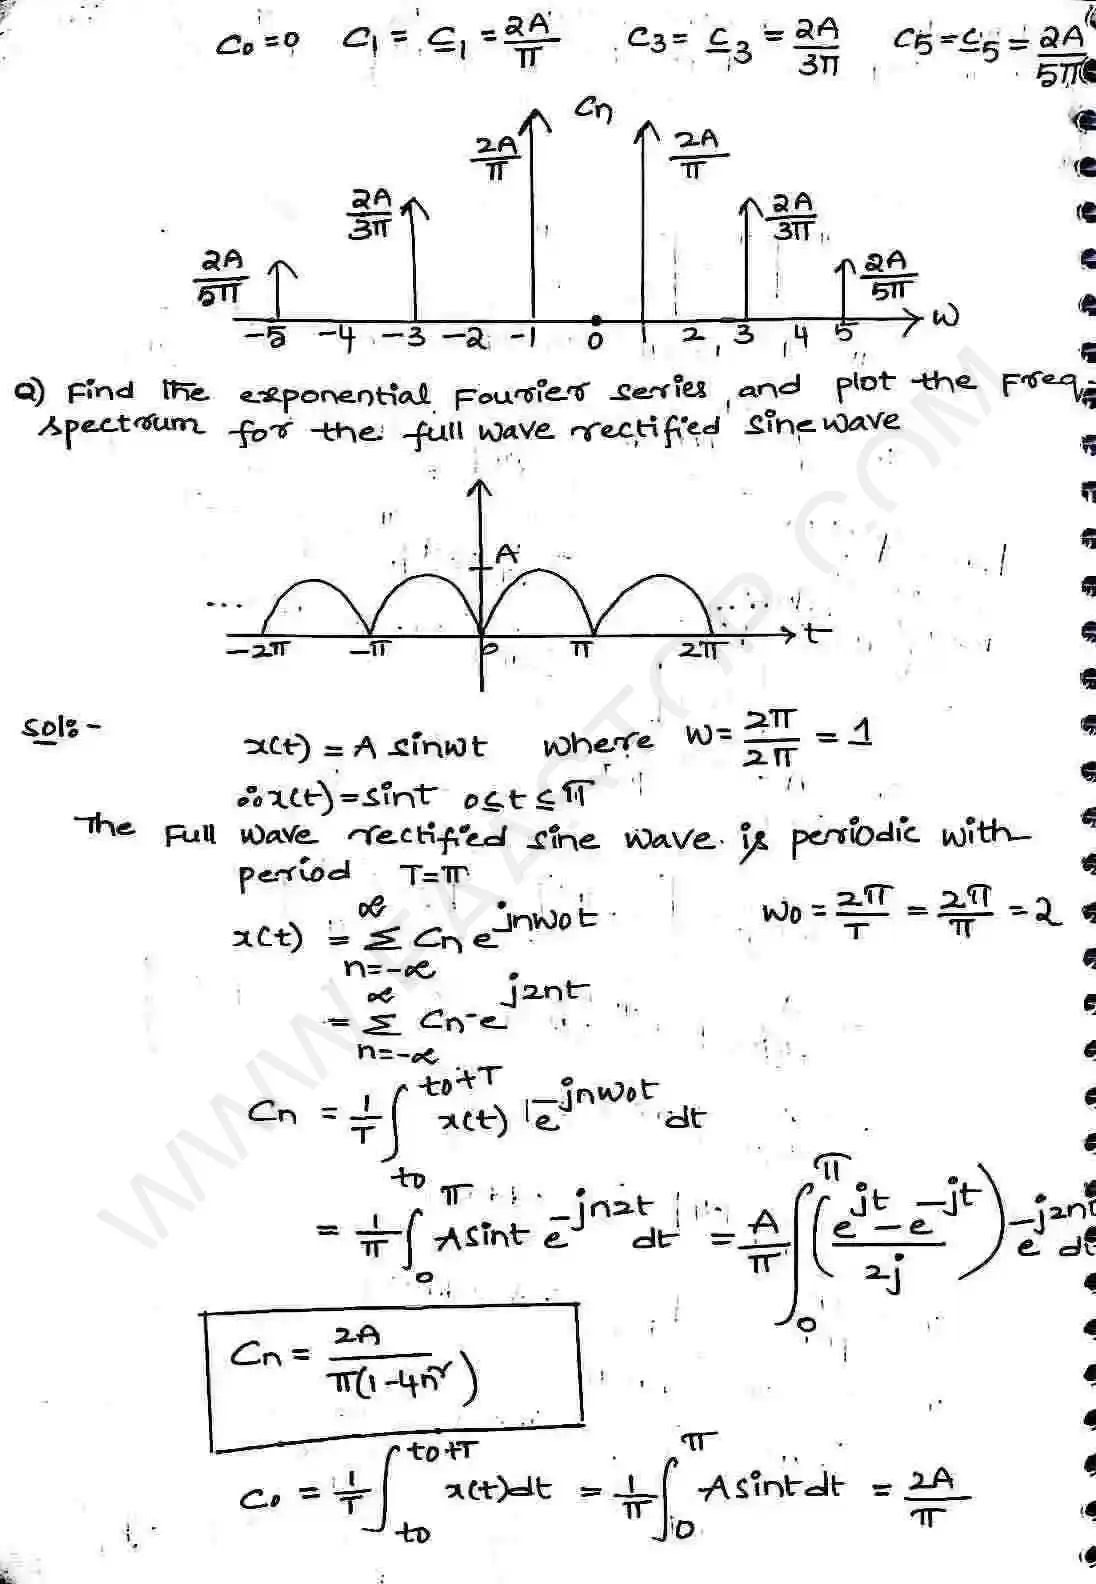 C0=0 C1 = C1 = 2A/π C3 = C3 = 2A/3π C5=C5 = 2A/5π
Cn
2A/π 2A/π
2A/3π 2A/3π
2A/5π 2A/5π
-5 -4 -3 -2 -1 0 1 2 3 4 5 W
Q) Find the exponential Fourier series and plot the Freq.
spectrum for the full wave rectified sine wave
A
.... ....
-2π -π 0 π 2π t
Sol:-
x(t) = A sinwt where W = 2π/2π = 1
∴ x(t) = sint 0≤t≤π
The Full wave rectified sine wave is periodic with
period T=π
x(t) = ∑_{n=-∞}^{∞} Cn e^{jnw0t} W0 = 2π/T = 2π/π = 2
= ∑_{n=-∞}^{∞} Cn e^{j2nt}
Cn = 1/T ∫_{t0}^{t0+T} x(t) e^{-jnw0t} dt
= 1/π ∫_0^π A sint e^{-jn2t} dt = A/π ∫_0^π ((e^{jt} - e^{-jt})/2j) e^{-j2nt} dt
Cn = 2A/π(1-4n²)
C0 = 1/T ∫_{t0}^{t0+T} x(t)dt = 1/π ∫_0^π A sint dt = 2A/π